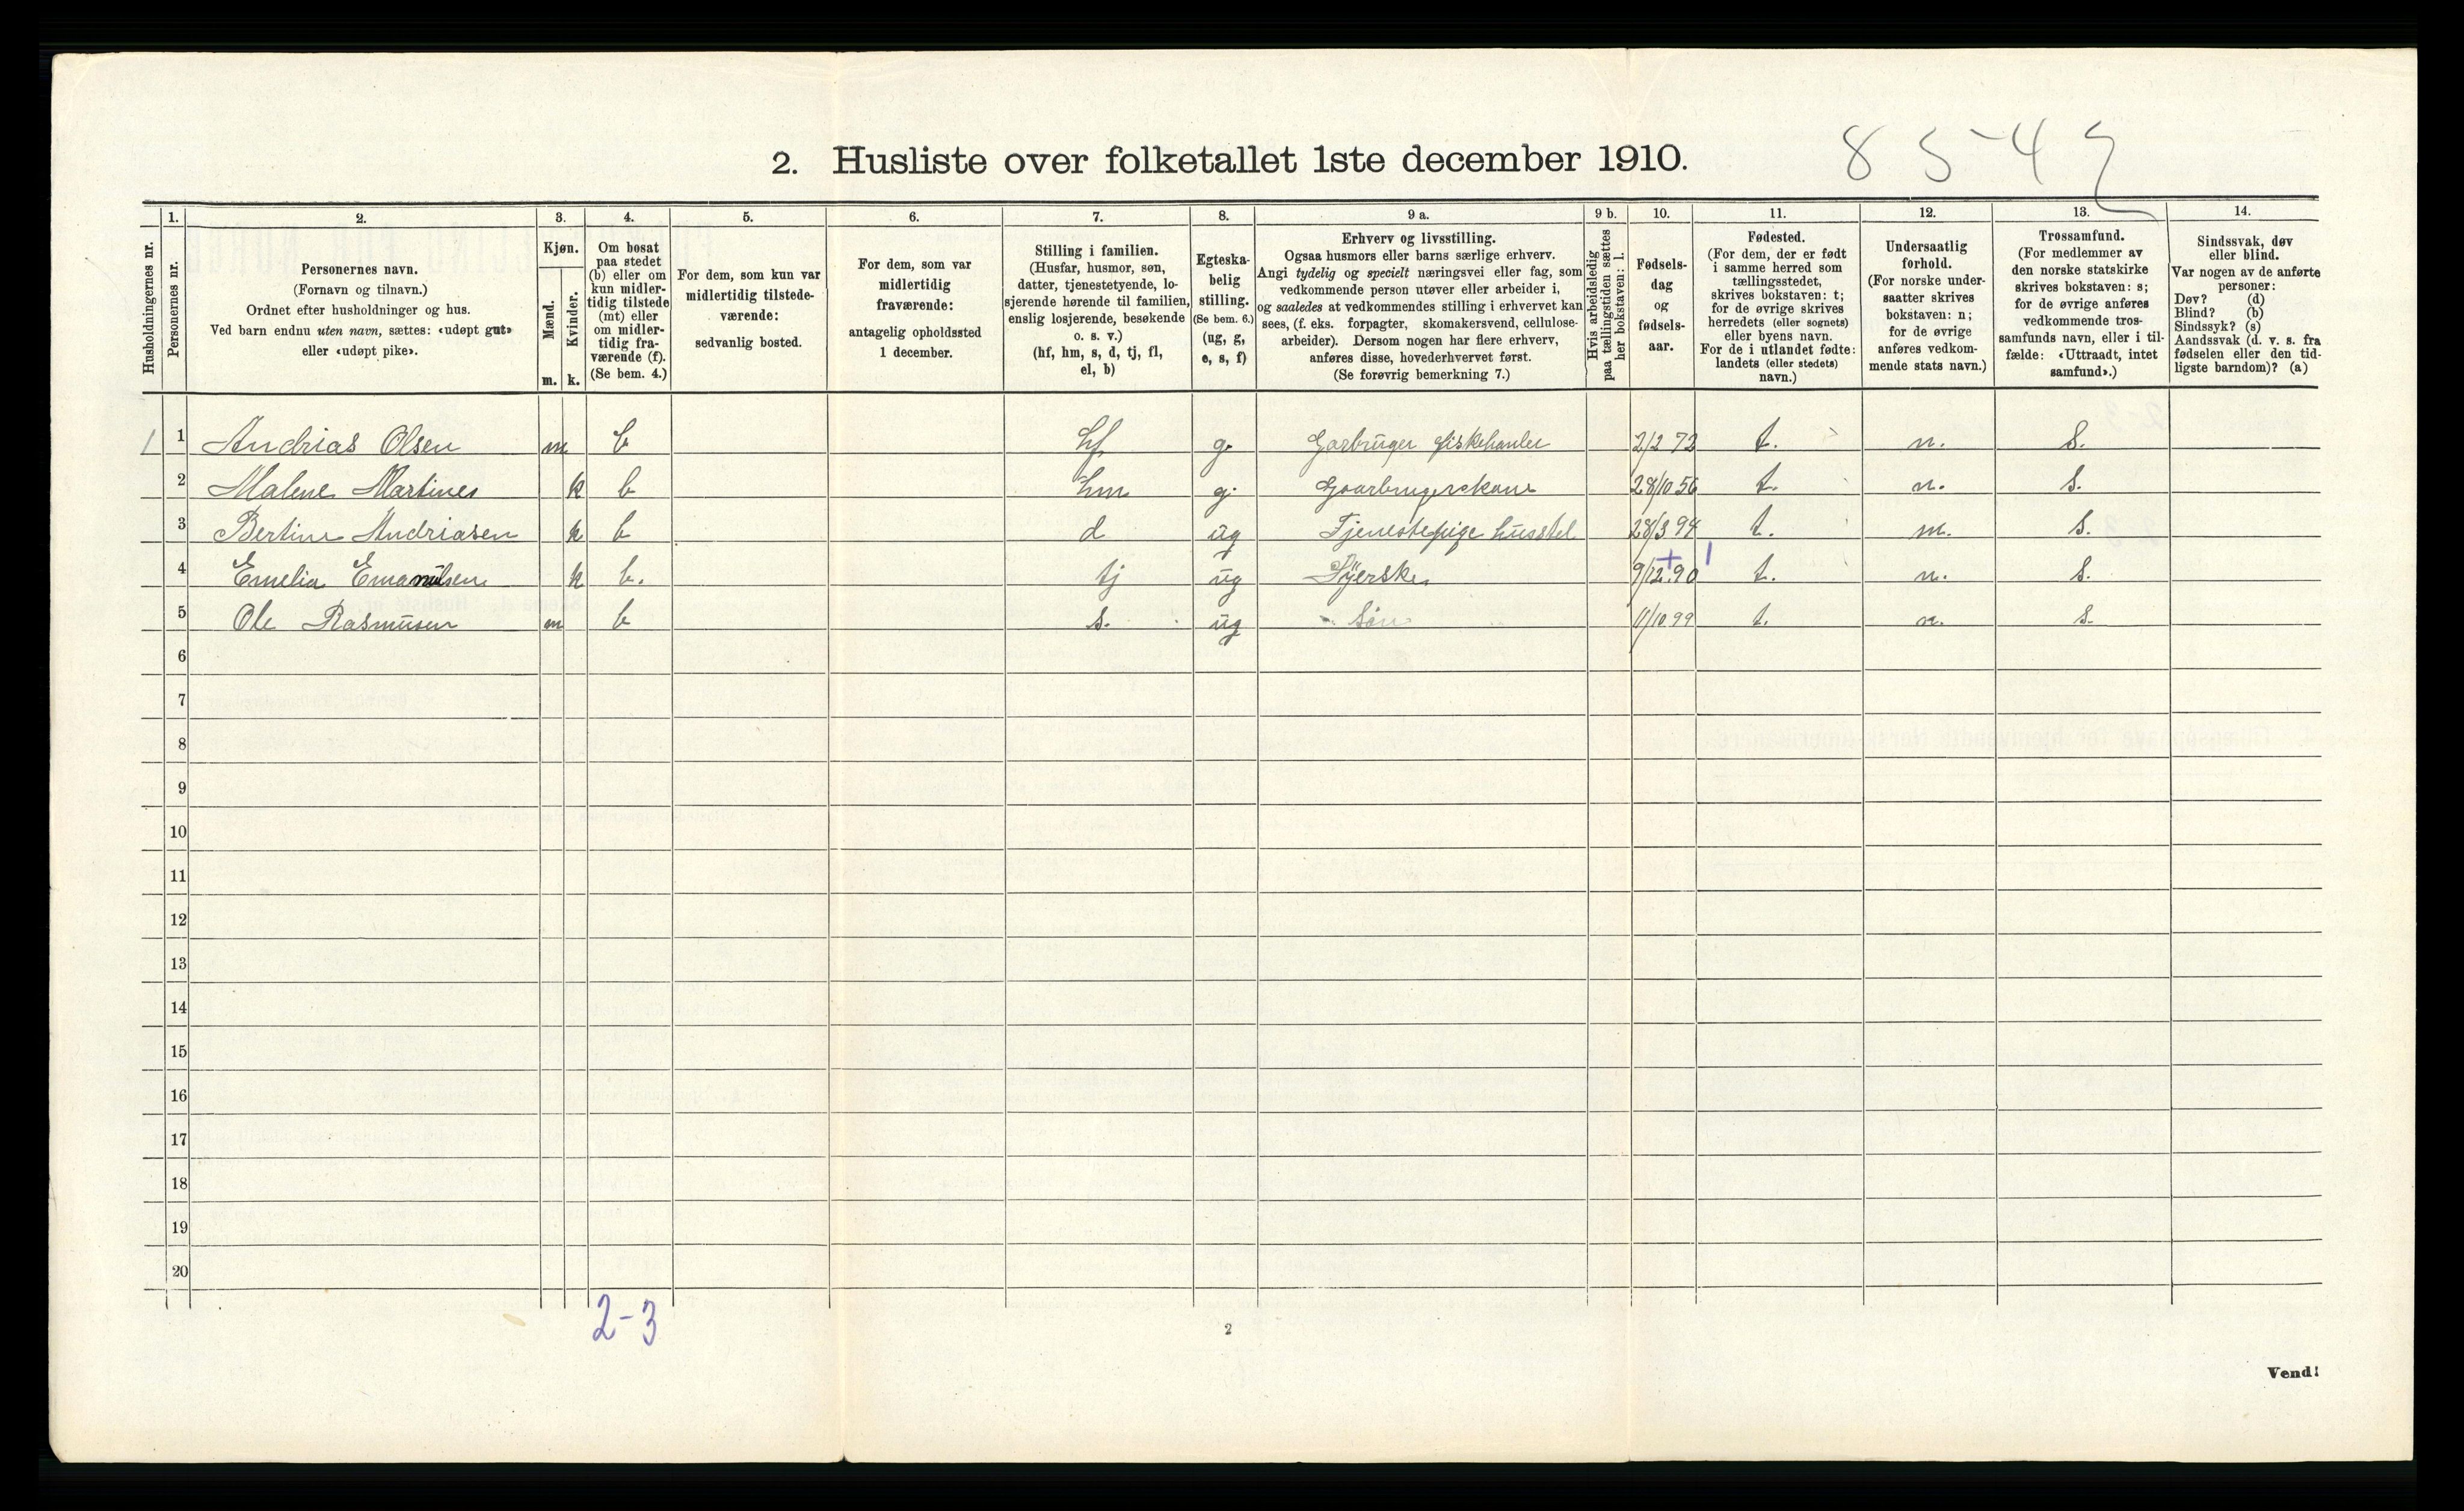 2. Husliste over folketallet 1ste december 1910.
8 5-4
1. 2. 3. 4. 5. 6. 7. 8. 9 a. 9 b. 10. 11. 12. 13. 14.
Husholdningernes nr.
Personernes nr.
Personernes navn.
(Fornavn og tilnavn.)
Ordnet efter husholdninger og hus.
Ved barn endnu uten navn, sættes: «udøpt gut»
eller «udøpt pike».
Kjøn.
Mænd.
Kvinder.
m. k.
Om bosat
paa stedet
(b) eller om
kun midler-
tidig tilstede
(mt) eller
om midler-
tidig fra-
værende (f).
(Se bem. 4.)
For dem, som kun var
midlertidig tilstede-
værende:
sedvanlig bosted.
For dem, som var
midlertidig
fraværende:
antagelig opholdssted
1 december.
Stilling i familien.
(Husfar, husmor, søn,
datter, tjenestetyende, lo-
sjerende hørende til familien,
enslig losjerende, besøkende
o. s. v.)
(hf, hm, s, d, tj, fl,
el, b)
Egteska-
belig
stilling.
(Se bem. 6.)
(ug, g,
e, s, f)
Erhverv og livsstilling.
Ogsaa husmors eller barns særlige erhverv.
Angi tydelig og specielt næringsvei eller fag, som
vedkommende person utøver eller arbeider i,
og saaledes at vedkommendes stilling i erhvervet kan
sees, (f. eks. forpagter, skomakersvend, cellulose-
arbeider). Dersom nogen har flere erhverv,
anføres disse, hovederhvervet først.
(Se forøvrig bemerkning 7.)
Hvis arbeidsledig
paa tællingstiden sættes
her bokstaven: l.
Fødsels-
dag
og
fødsels-
aar.
Fødested.
(For dem, der er født
i samme herred som
tællingsstedet,
skrives bokstaven: t;
for de øvrige skrives
herredets (eller sognets)
eller byens navn.
For de i utlandet fødte:
landets (eller stedets)
navn.)
Undersaatlig
forhold.
(For norske under-
saatter skrives
bokstaven: n;
for de øvrige
anføres vedkom-
mende stats navn.)
Trossamfund.
(For medlemmer av
den norske statskirke
skrives bokstaven: s;
for de øvrige anføres
vedkommende tros-
samfunds navn, eller i til-
fælde: «Uttraadt, intet
samfund».)
Sindssvak, døv
eller blind.
Var nogen av de anførte
personer:
Døv? (d)
Blind? (b)
Sindssyk? (s)
Aandssvak (d. v. s. fra
fødselen eller den tid-
ligste barndom)? (a)
1 1 Andrias Olsen m b hf g. Gorbruger fiskehanler 2/2 72 t. n. S.
2 Malene Martines k b hm g. Goarbrugerskone 28/10 56 t. n. S.
3 Bertine Andriasen k b d ug Tjenestepige husstel 28/3 94 t. n. S.
4 Emelia Emanulsen k b. tj ug Syerske 9/12 90 t. n. S.
5 Ole Rasmusen m b s. ug Søn 11/10 99 t. n. S.
6
7
8
9
10
11
12
13
14
15
16
17
18
19
20
2-3
2
Vend!